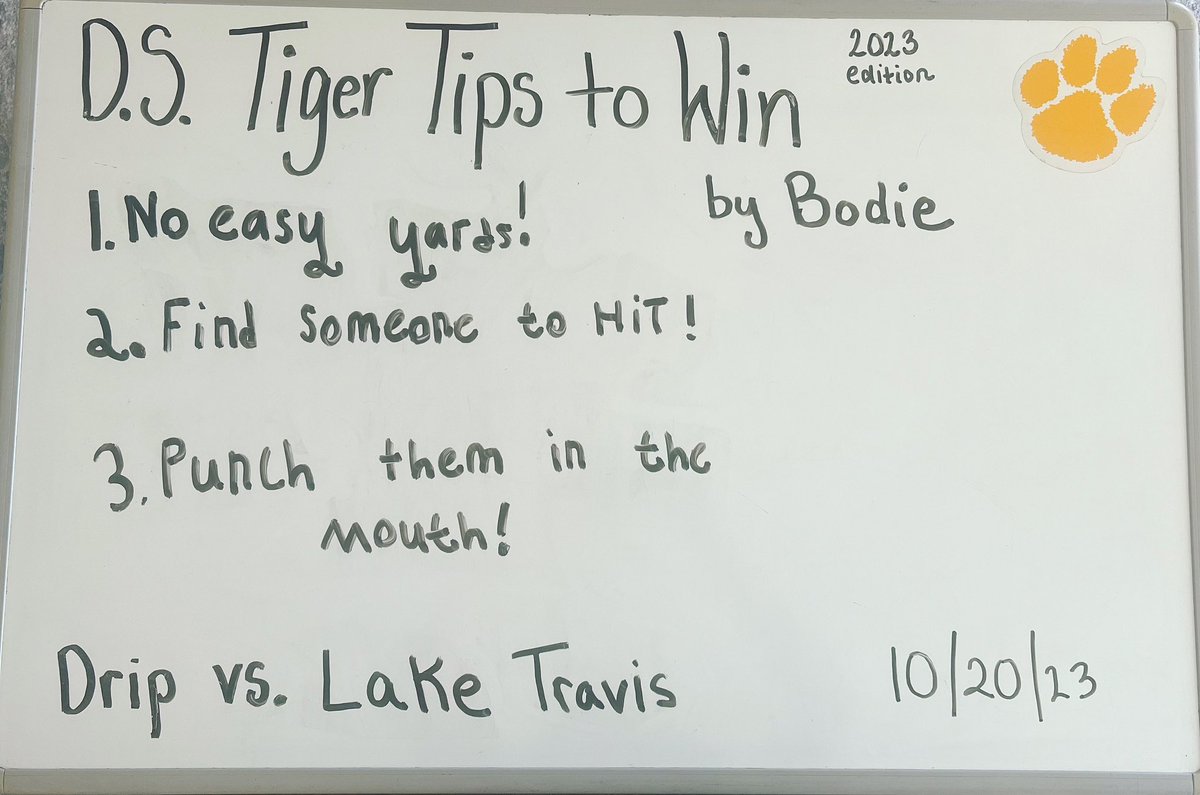 D.S. Tiger Tips to Win
2023
edition
by Bodie
1. No easy yards!
2. Find someone to HiT!
3. Punch them in the
mouth!
Drip vs. Lake Travis
10/20/23